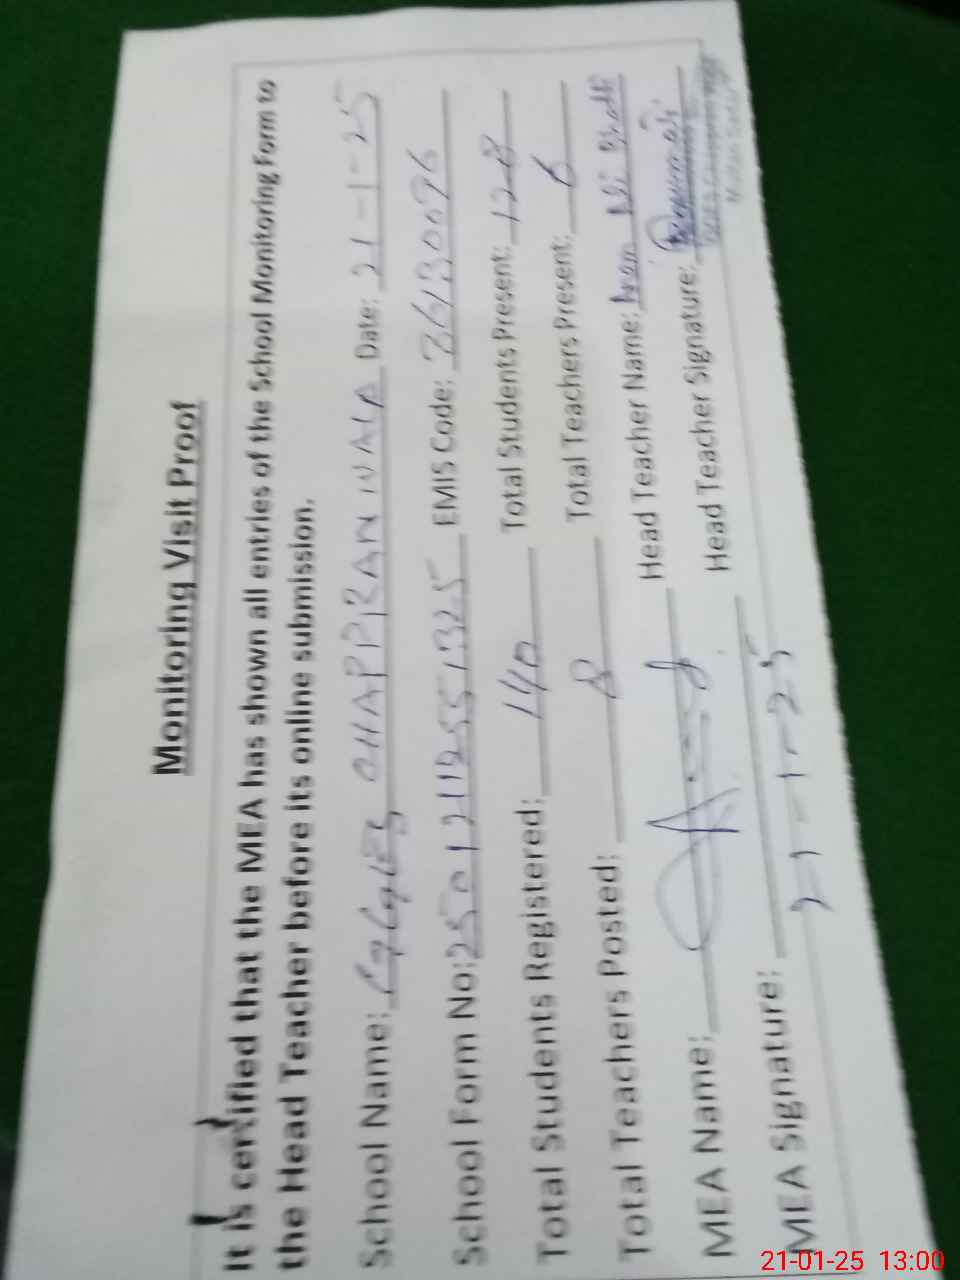 Monitoring Visit Proof
It is certified that the MEA has shown all entries of the School Monitoring Form to
the Head Teacher before its online submission.
School Name: CHAPPRANWALA Date: 21-1-25
School Form No: 25012112551325 EMIS Code: 36130096
Total Students Registered: 140 Total Students Present: 128
Total Teachers Posted: 8 Total Teachers Present: 6
MEA Name: Head Teacher Name:
MEA Signature: Head Teacher Signature:
21-1-25
21-01-25 13:00